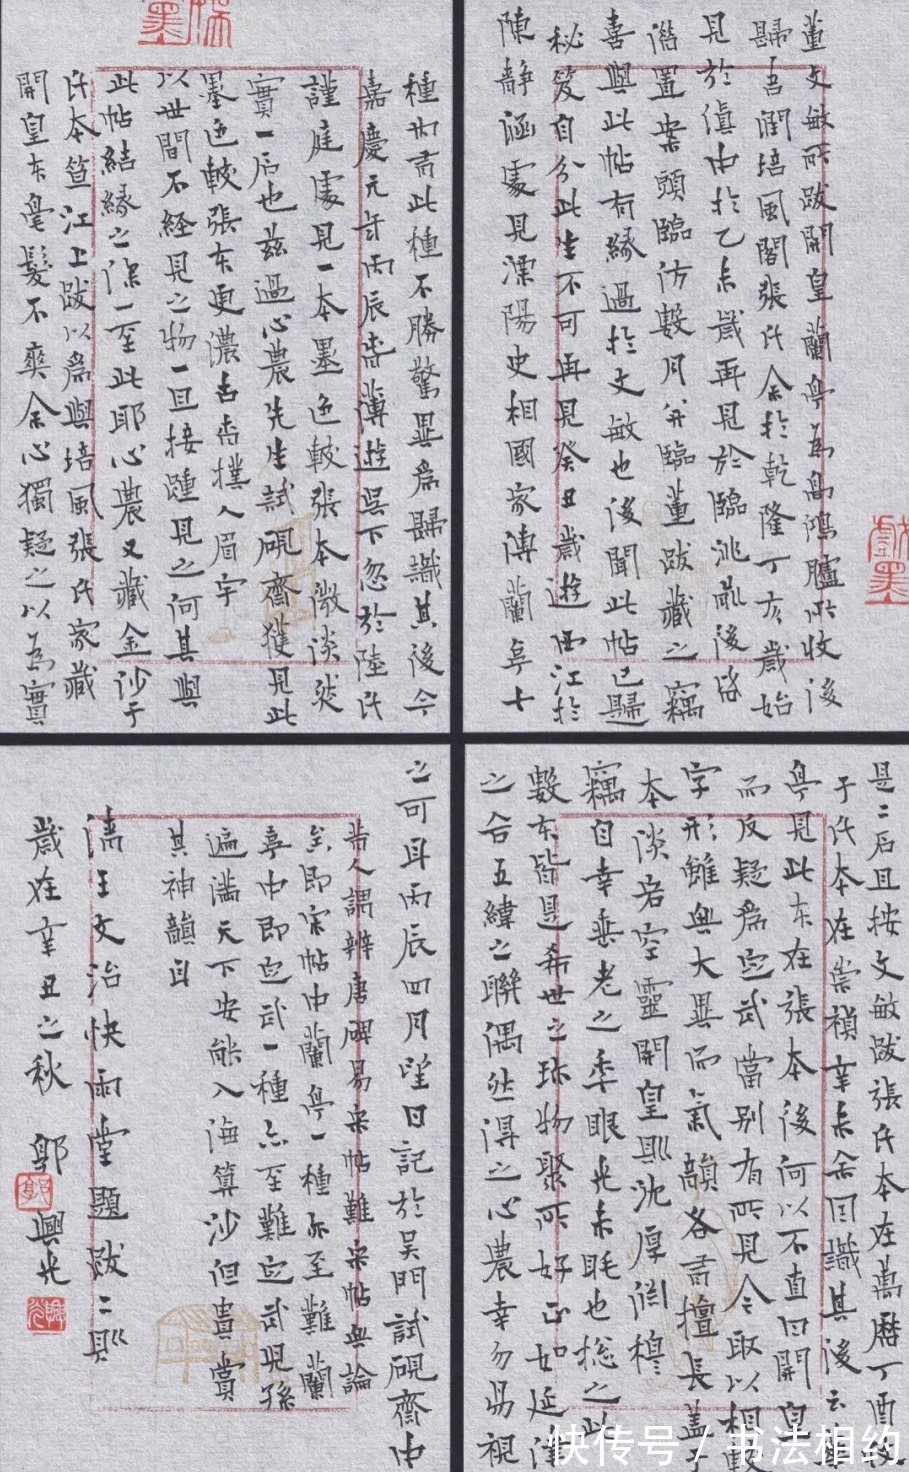 董文敏所跋開皇蘭亭為高鴻臚所收後
歸吾潤培風閣張氏余於乾隆丁亥歲始
見於滇中於乙未歲再見於臨洮最後啓
潛置案頭臨仿數月并臨董跋藏之竊
喜與此帖有緣過於文敏也後聞此帖已歸
秘笈自分此生不可再見癸丑歲遊西江於
陳靜涵處見溧陽史相國家傳蘭亭十
種內有此種不勝驚異為歸識其後今
嘉慶元年丙辰春薄遊吳下忽於陸氏
謹庭處見一本墨色較張本微淡然
實一石也茲過心農先生試硯齋獲見此
墨色較張本更濃古香撲人眉宇
以世間不經見之物一旦接踵見之何其與
此帖結緣之深一至此耶心農又藏金沙于
氏本笪江上跋以為與培風張氏家藏
開皇本毫髮不爽余心獨疑之以為實
是二石且按文敏跋張氏本在萬曆丁酉跋
于氏本在崇禎辛未余因識其後云
亭見此本在張本後何以不直曰開皇
而反疑為定武當別有所見今取以相較
字形雖無大異而氣韻各有擅長蓋于
本淡宕空靈開皇則沈厚淵穆
竊自幸垂老之年眼光未眊也總之此
數本皆是希世之珍物聚所好正如延津
之合五緯之聯偶然得之心農幸勿易視
之可耳丙辰四月望日記於吳門試硯齋中
昔人謂辨唐碑易宋帖難宋帖無論
矣即宋帖中蘭亭一種亦至難蘭
亭中即定武一種亦至難定武兒孫
遍滿天下安能入海算沙但貴賞
其神韻耳
清王文治快雨堂題跋二則
歲在辛丑之秋 郭興光
快传号/书法相约